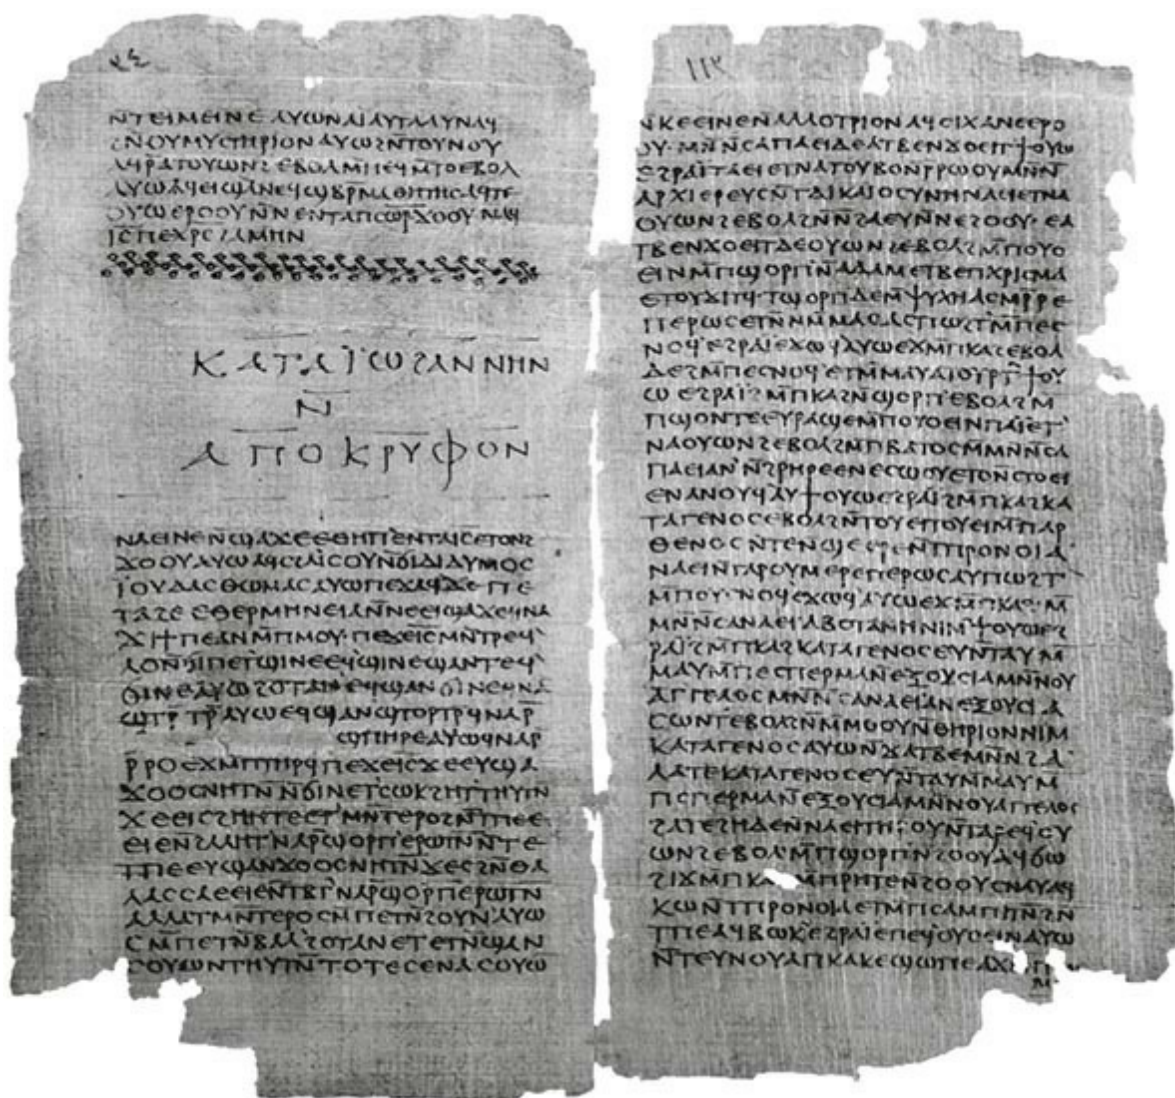 ⲛ̄ⲧⲉⲓⲙⲉⲓⲛⲉⲁⲩⲱⲛⲁⲓⲁⲩⲧⲁⲁⲩⲛⲁϥ
ϩⲛ̄ⲟⲩⲙⲩⲥⲧⲏⲣⲓⲟⲛⲁⲩⲱϩⲛ̄ⲧⲟⲩⲛⲟⲩ
ⲁϥⲣ̄ⲁⲧⲟⲩⲱⲛϩⲉⲃⲟⲗⲙ̄ⲡⲉϥⲙ̄ⲧⲟⲉⲃⲟⲗ
ⲁⲩⲱⲁϥⲉⲓϣⲁⲛⲉϥϣⲃⲣ̄ⲙⲁⲑⲏⲧⲏⲥⲁϥⲧⲉ
ⲟⲩⲱⲉⲣⲟⲟⲩⲛ̄ⲛⲉⲛⲧⲁⲡⲥⲱⲣ̄ϫⲟⲟⲩⲛⲁϥ
ⲓⲥ̄ⲡⲉⲭⲣⲥ̄ϩⲁⲙⲏⲛ
ⲕⲁⲧⲁⲓ̈ⲱϩⲁⲛⲛⲏⲛ
ⲛ̄
ⲁⲡⲟⲕⲣⲩⲫⲟⲛ
ⲛⲁⲉⲓⲛⲉⲛ̄ϣⲁϫⲉⲉⲑⲏⲡ̓ⲉⲛⲧⲁⲓⲥ̄ⲉⲧⲟⲛϩ
ϫⲟⲟⲩⲁⲩⲱⲁϥⲥϩⲁⲓ̈ⲥⲟⲩⲛ̄ϭⲓⲇⲓⲇⲩⲙⲟⲥ
ⲓ̈ⲟⲩⲇⲁⲥⲑⲱⲙⲁⲥⲁⲩⲱⲡⲉϫⲁϥϫⲉⲡⲉ
ⲧⲁϩⲉⲉⲑⲉⲣⲙⲏⲛⲉⲓⲁⲛ̄ⲛⲉⲉⲓϣⲁϫⲉϥⲛⲁ
ϫⲓϯⲡⲉⲁⲛⲙ̄ⲡⲙⲟⲩ·ⲡⲉϫⲉⲓⲥ̄ⲙⲛ̄ⲧⲣⲉϥ̓
ⲗⲟⲛ̄ϭⲓⲡⲉⲧϣⲓⲛⲉⲉϥϣⲓⲛⲉϣⲁⲛⲧⲉϥ̓
ϭⲓⲛⲉⲁⲩⲱϩⲟⲧⲁⲛ̓ⲉϥϣⲁⲛϭⲓⲛⲉϥⲛⲁ
ϣⲧⲣ̄ⲧⲣ̄ⲁⲩⲱⲉϥϣⲁⲛϣⲧⲟⲣⲧⲣ̄ϥⲛⲁⲣ̄
ϣⲡⲏⲣⲉⲁⲩⲱϥⲛⲁⲣ̄
ⲣ̄ⲣⲟⲉϫⲙ̄ⲡⲧⲏⲣϥ̄ⲡⲉϫⲉⲓⲥ̄ϫⲉⲉⲩϣⲁ
ϫⲟⲟⲥⲛⲏⲧⲛ̄ⲛ̄ϭⲓⲛⲉⲧⲥⲱⲕϩⲏⲧ̓ⲧⲏⲩⲧⲛ̄
ϫⲉⲉⲓⲥϩⲏⲏⲧⲉⲉⲧ̓ⲙⲛ̄ⲧⲉⲣⲟϩⲛ̄ⲧⲡⲉⲉ
ⲉⲓⲉⲛ̄ϩⲁⲗⲏⲧ̓ⲛⲁⲣ̄ϣⲟⲣⲡ̓ⲉⲣⲱⲧⲛ̄ⲛ̄ⲧⲉ
ⲧⲡⲉⲉⲩϣⲁⲛϫⲟⲟⲥⲛⲏⲧⲛ̄ϫⲉⲥϩⲛ̄ⲑⲁ
ⲗⲁⲥⲥⲁⲉⲉⲓⲉⲛ̄ⲧⲃⲧ̓ⲛⲁⲣ̄ϣⲟⲣⲡ̓ⲉⲣⲱⲧⲛ̄
ⲁⲗⲗⲁⲧⲙⲛ̄ⲧⲉⲣⲟⲥⲙ̄ⲡⲉⲧⲛ̄ϩⲟⲩⲛ̓ⲁⲩⲱ
ⲥⲙ̄ⲡⲉⲧⲛ̄ⲃⲁⲗ̓ϩⲟⲧⲁⲛⲉⲧⲉⲧⲛ̄ϣⲁⲛ
ⲥⲟⲩⲱⲛⲧⲏⲩⲧⲛ̄ⲧⲟⲧⲉⲥⲉⲛⲁⲥⲟⲩⲱ
ⲛ̄ⲕⲉⲉⲓⲛⲉⲛⲁⲗⲗⲟⲧⲣⲓⲟⲛⲁϥⲉⲓϫⲁⲛⲉⲉⲣⲟ
ⲟⲩ·ⲙⲛ̄ⲛ̄ⲥⲁⲡⲁⲉⲓⲇⲉⲁⲧⲃⲉⲛϫⲟⲉⲓⲧ̓ϯⲟⲩⲱ
ⲉϩⲣⲁⲓ̈ⲧⲁⲉⲓⲉⲧⲛⲁⲧⲟⲩⲃⲟⲛ̄ⲣ̄ⲣⲱⲟⲩⲙⲛ̄ⲛ̄
ⲁⲣⲭⲓⲉⲣⲉⲩⲥⲛ̄ⲧⲇⲓⲕⲁⲓⲟⲥⲩⲛⲏⲛⲁⲉⲓⲉⲧⲛⲁ
ⲟⲩⲱⲛϩⲉⲃⲟⲗϩⲛ̄ⲛ̄ϩⲁⲉⲩⲛ̄ⲛⲉϩⲟⲟⲩ·ⲉⲁ
ⲧⲃⲉⲛϫⲟⲉⲓⲧ̓ⲇⲉⲟⲩⲱⲛϩⲉⲃⲟⲗϩⲙ̄ⲡⲟⲩⲟ
ⲉⲓⲛⲙ̄ⲡϣⲟⲣⲡ̓ⲛ̄ⲁⲇⲁⲙⲉⲧⲃⲉⲡⲭⲣⲓⲥⲙⲁ
ⲉⲧⲟⲩϫⲓⲧϥ̓·ⲧϣⲟⲣⲡ̓ⲇⲉⲙ̄ⲯⲩⲭⲏⲁⲥⲙⲣ̄ⲣⲉ
ⲡⲉⲣⲱⲥⲉⲧⲛⲙ̄ⲙⲁⲥⲁⲥⲡⲱϩⲧ̓ⲙ̄ⲡⲉⲥ
ⲛⲟϥ̓ⲉϩⲣⲁⲓ̈ⲉϫⲱϥ̓ⲁⲩⲱⲉϫⲙ̄ⲡⲕⲁϩⲉⲃⲟⲗ
ⲇⲉϩⲙ̄ⲡⲉⲥⲛⲟϥ̓ⲉⲧⲙ̄ⲙⲁⲩⲁⲟⲩⲣⲧ̓ϯⲟⲩ
ⲱⲉϩⲣⲁⲓ̈ϩⲙ̄ⲡⲕⲁϩⲛ̄ϣⲟⲣⲡ̓ⲉⲃⲟⲗϩⲙ̄
ⲡϣⲟⲛⲧⲉⲉⲩⲣⲁϣⲉⲙ̄ⲡⲟⲩⲟⲉⲓⲛⲡⲁⲓ̈ⲉⲧ̓
ⲛⲁⲟⲩⲱⲛϩⲉⲃⲟⲗϩⲙ̄ⲡⲃⲁⲧⲟⲥⲙⲛ̄ⲛ̄ⲥⲁ
ⲡⲁⲉⲓⲁⲛ̄ϩⲣⲏⲣⲉⲉⲛⲉⲥⲱⲟⲩⲉⲧⲟⲛⲥⲧⲟⲉⲓ
ⲉⲛⲁⲛⲟⲩϥ̓ⲁⲩϯⲟⲩⲱⲉϩⲣⲁⲓ̈ϩⲙ̄ⲡⲕⲁϩⲕⲁ
ⲧⲁⲅⲉⲛⲟⲥⲉⲃⲟⲗϩⲛ̄ⲧⲟⲩⲉⲓⲧⲟⲩⲉⲓⲙ̄ⲡⲁⲣ
ⲑⲉⲛⲟⲥⲛ̄ⲧⲉⲛ̄ϣⲉⲉⲣⲉⲛ̄ⲧⲡⲣⲟⲛⲟⲓⲁ
ⲛⲁⲉⲓⲛ̄ⲧⲁⲣⲟⲩⲙⲉⲣⲉⲡⲉⲣⲱⲥⲁⲩⲡⲱϩⲧ̓
ⲙ̄ⲡⲟⲩⲥⲛⲟϥ̓ⲉϫⲱϥ̓ⲁⲩⲱⲉϫⲙ̄ⲡⲕⲁϩ·
ⲙⲛ̄ⲛ̄ⲥⲁⲛⲁⲉⲓⲁⲃⲟⲧⲁⲛⲏⲛⲓⲙ̓ϯⲟⲩⲱⲉϩ
ⲣⲁⲓ̈ϩⲙ̄ⲡⲕⲁϩⲕⲁⲧⲁⲅⲉⲛⲟⲥⲉⲩⲛ̄ⲧⲁⲩⲙ̄
ⲙⲁⲩⲙ̄ⲡⲉⲥⲡⲉⲣⲙⲁⲛ̄ⲉⲝⲟⲩⲥⲓⲁⲙⲛ̄ⲛⲟⲩ
ⲁⲅⲅⲉⲗⲟⲥⲙⲛ̄ⲛ̄ⲥⲁⲛⲁⲉⲓⲁⲛⲉⲝⲟⲩⲥⲓⲁ
ⲥⲱⲛⲧ̓ⲉⲃⲟⲗϩⲛ̄ⲙ̄ⲙⲟⲩⲛ̄ⲑⲏⲣⲓⲟⲛⲛⲓⲙ
ⲕⲁⲧⲁⲅⲉⲛⲟⲥⲁⲩⲱⲛ̄ϫⲁⲧⲃⲉⲙⲛ̄ⲛ̄ϩⲁ
ⲗⲁⲧⲉⲕⲁⲧⲁⲅⲉⲛⲟⲥⲉⲩⲛ̄ⲧⲁⲩⲙ̄ⲙⲁⲩⲙ̄
ⲡⲥⲡⲉⲣⲙⲁⲛ̄ⲉⲝⲟⲩⲥⲓⲁⲙⲛ̄ⲛⲟⲩⲁⲅⲅⲉⲗⲟⲥ
ϩⲁⲧⲉϩⲏⲇⲉⲛ̄ⲛⲁⲉⲓⲧⲏⲣⲟⲩⲛ̄ⲧⲁⲣⲉϥⲟⲩ
ⲱⲛϩⲉⲃⲟⲗⲙ̄ⲡϣⲟⲣⲡ̓ⲛ̄ϩⲟⲟⲩⲁϥϭⲱ
ϩⲓϫⲙ̄ⲡⲕⲁϩⲙ̄ⲡⲣⲏⲧⲉⲛ̄ϩⲟⲟⲩⲥⲛⲁⲩⲁϥ
ⲕⲱⲛ̄ⲧⲡⲣⲟⲛⲟⲓⲁⲉⲧⲙ̄ⲡⲥⲁⲙⲡⲓⲧⲛ̄ϩⲛ̄
ⲧⲡⲉⲁϥⲃⲱⲕ̓ⲉϩⲣⲁⲓ̈ⲉⲡⲉϥⲟⲩⲟⲉⲓⲛⲁⲩⲱ
ⲛ̄ⲧⲉⲩⲛⲟⲩⲁⲡⲕⲁⲕⲉϣⲱⲡⲉⲁϫⲙ̄